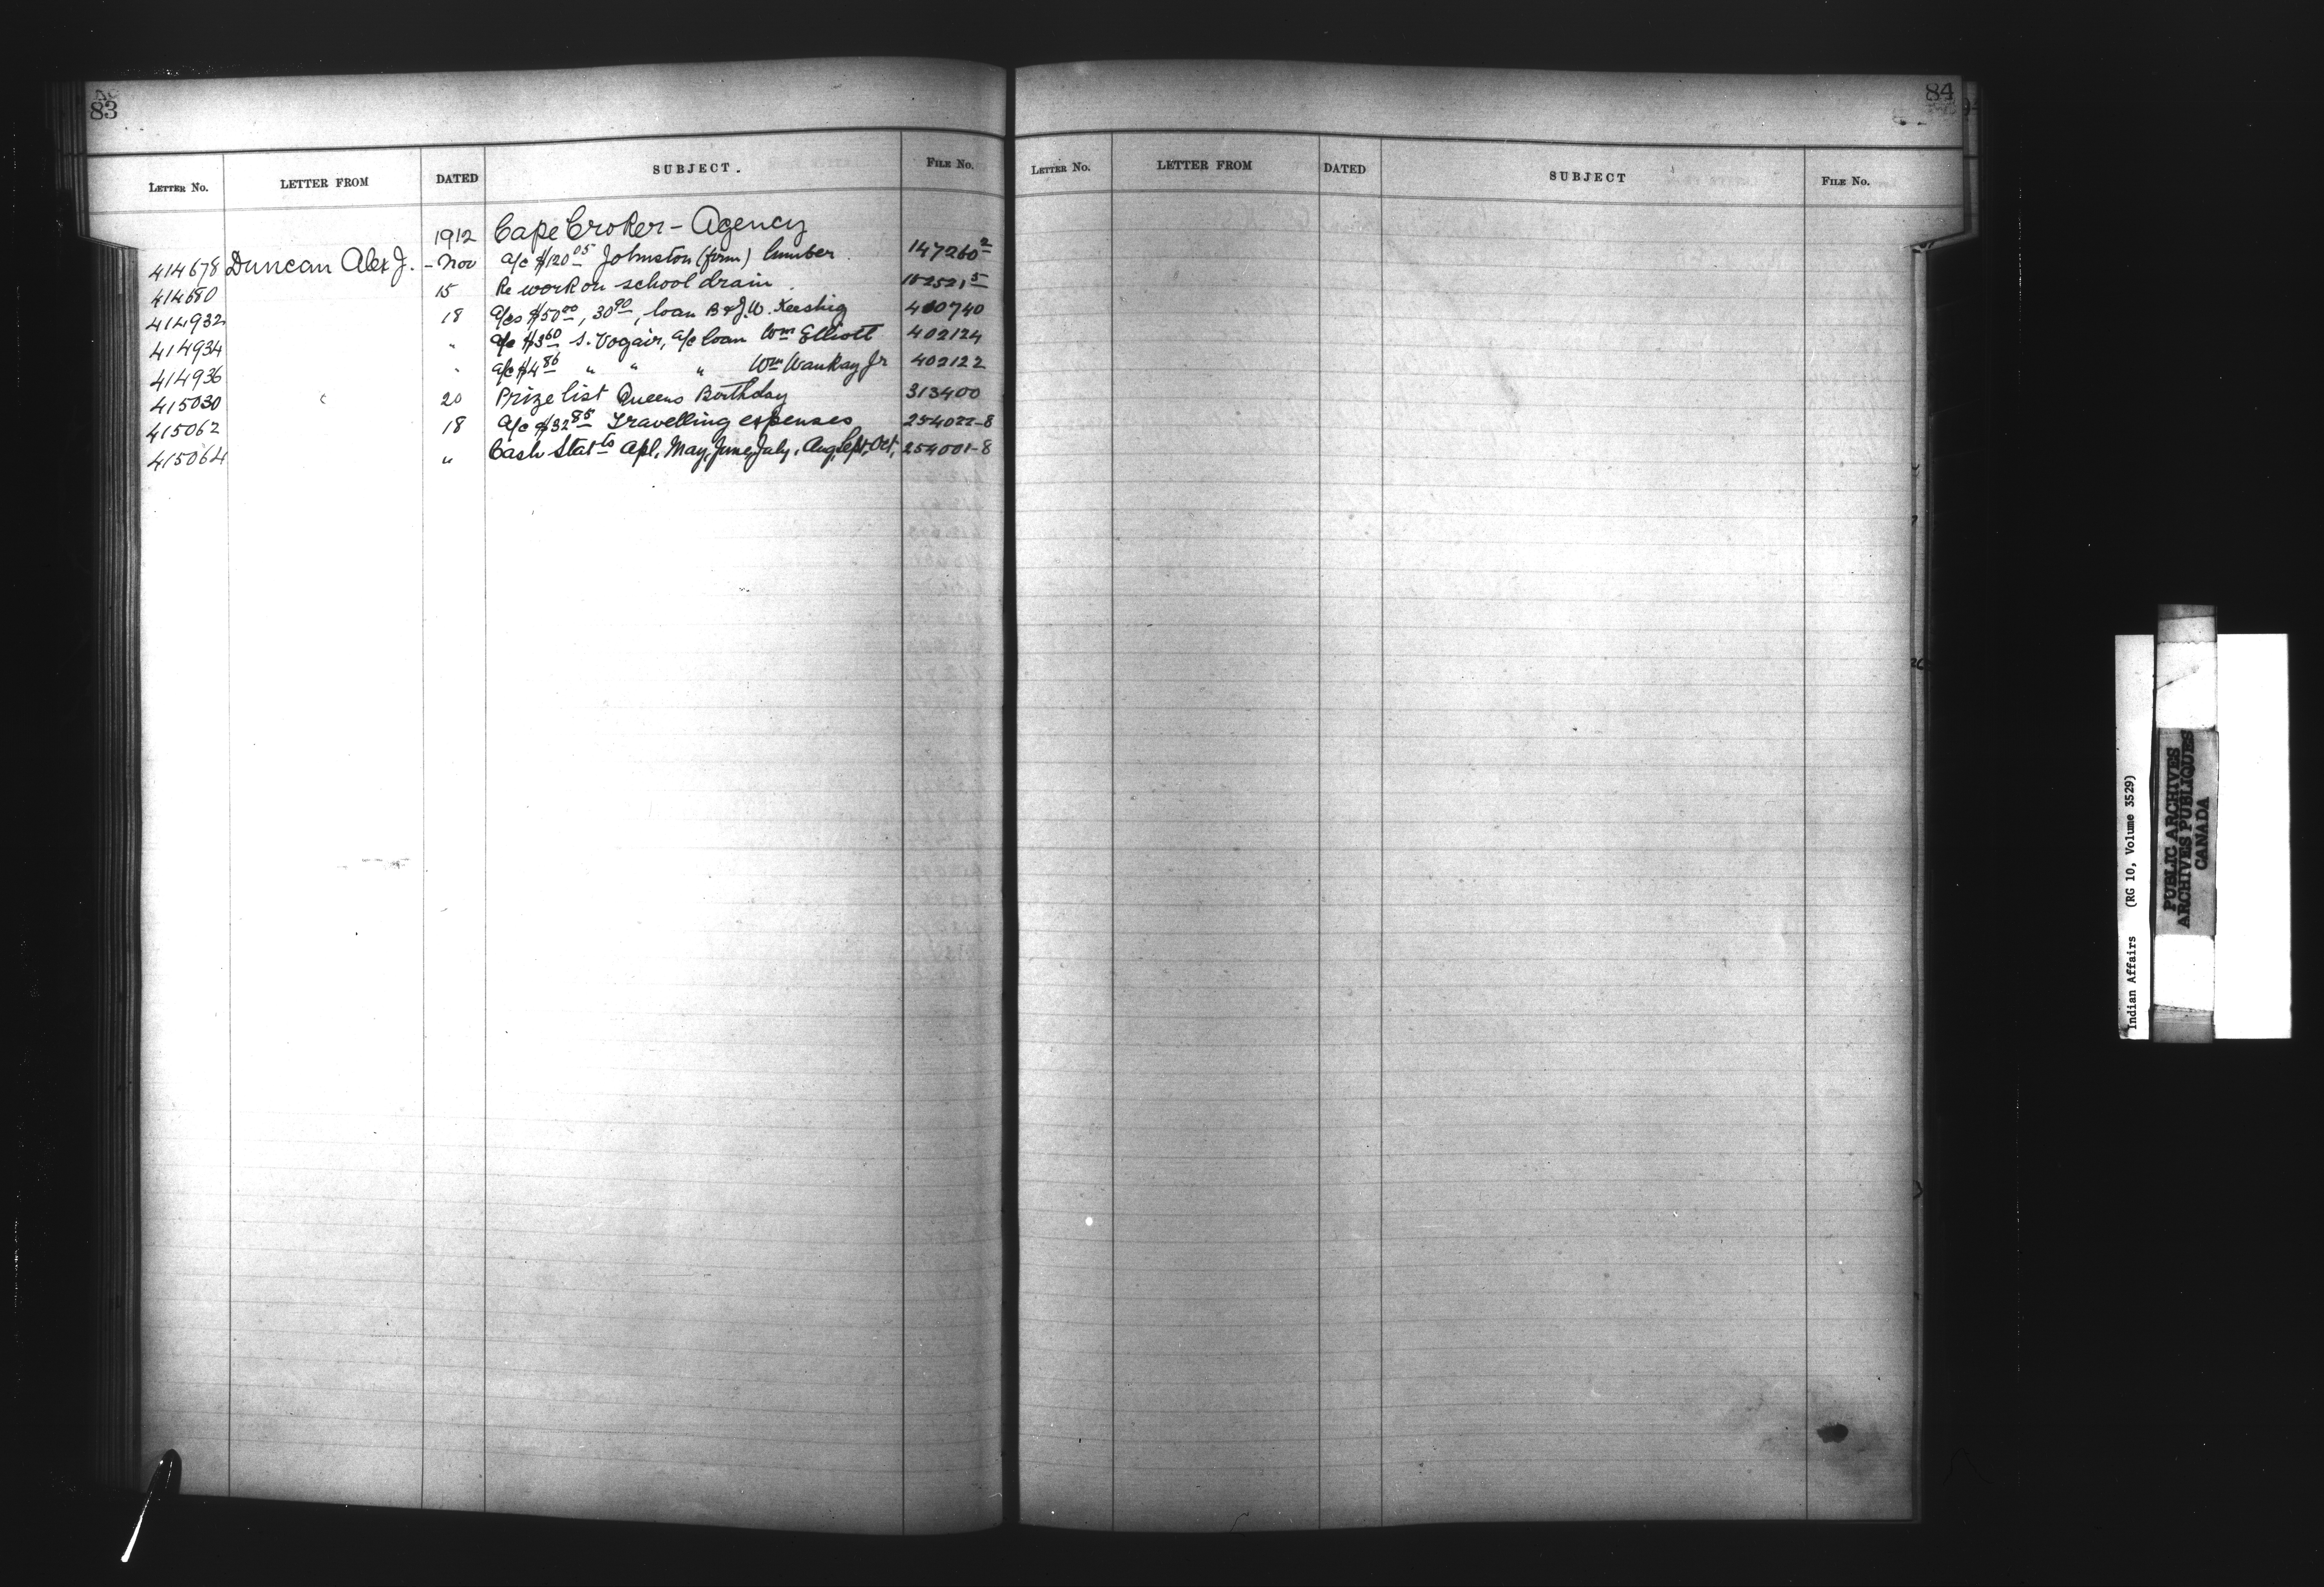 83
LETTER NO. LETTER FROM DATED SUBJECT. FILE NO.
1912 Cape Croker - Agency
414678 Duncan Alex J. - Nov a/c $120 05 Johnston (firm) lumber 147260 2
414680 15 Re work on school drain 5
414932 18 a/cs $50 00, 30 90, loan B & J. W. Keeshig 400740
414934 " a/c $3 60 S. a/c loan Wm Elliott 402124
414936 " a/c $4 86 " " " Wm Waukay Jr 402122
415030 20 Prize list Queens Birthday 313400
415062 18 a/c $32 85 Travelling expenses 254022-8
415064 " Cash Statts Apl, May, June, July, Aug, Sept, Oct, 254001-8
84
LETTER NO. LETTER FROM DATED SUBJECT FILE NO.
Indian Affairs (RG 10, Volume 3529)
PUBLIC ARCHIVES
ARCHIVES PUBLIQUES
CANADA